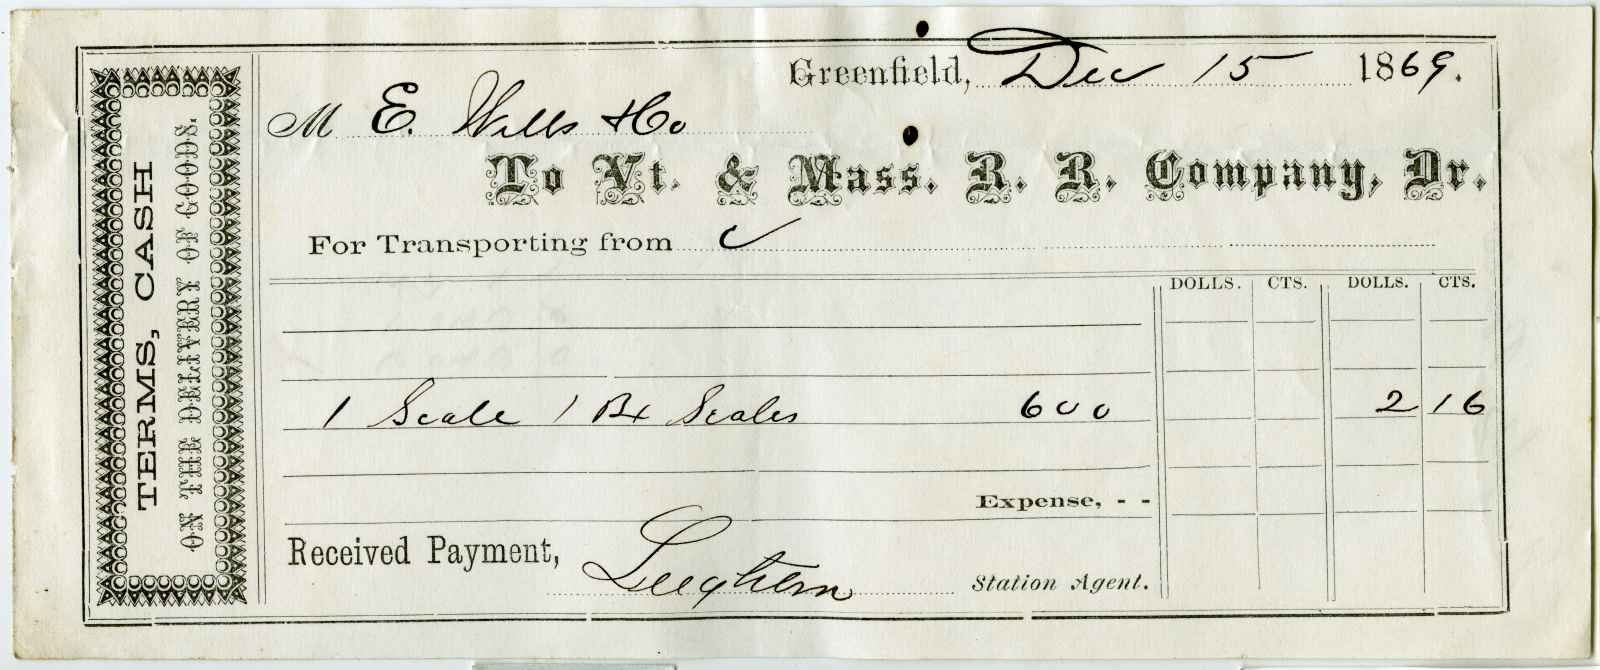 Greenfield, Dec 15 1869.
M E. Wells & Co
To Vt. & Mass. R. R. Company, Dr.
For Transporting from
DOLLS. CTS. DOLLS. CTS.
1 Scale 1 Bx Scales 600 2 16
Expense, - -
Received Payment,
Station Agent.
TERMS, CASH
ON THE DELIVERY OF GOODS.